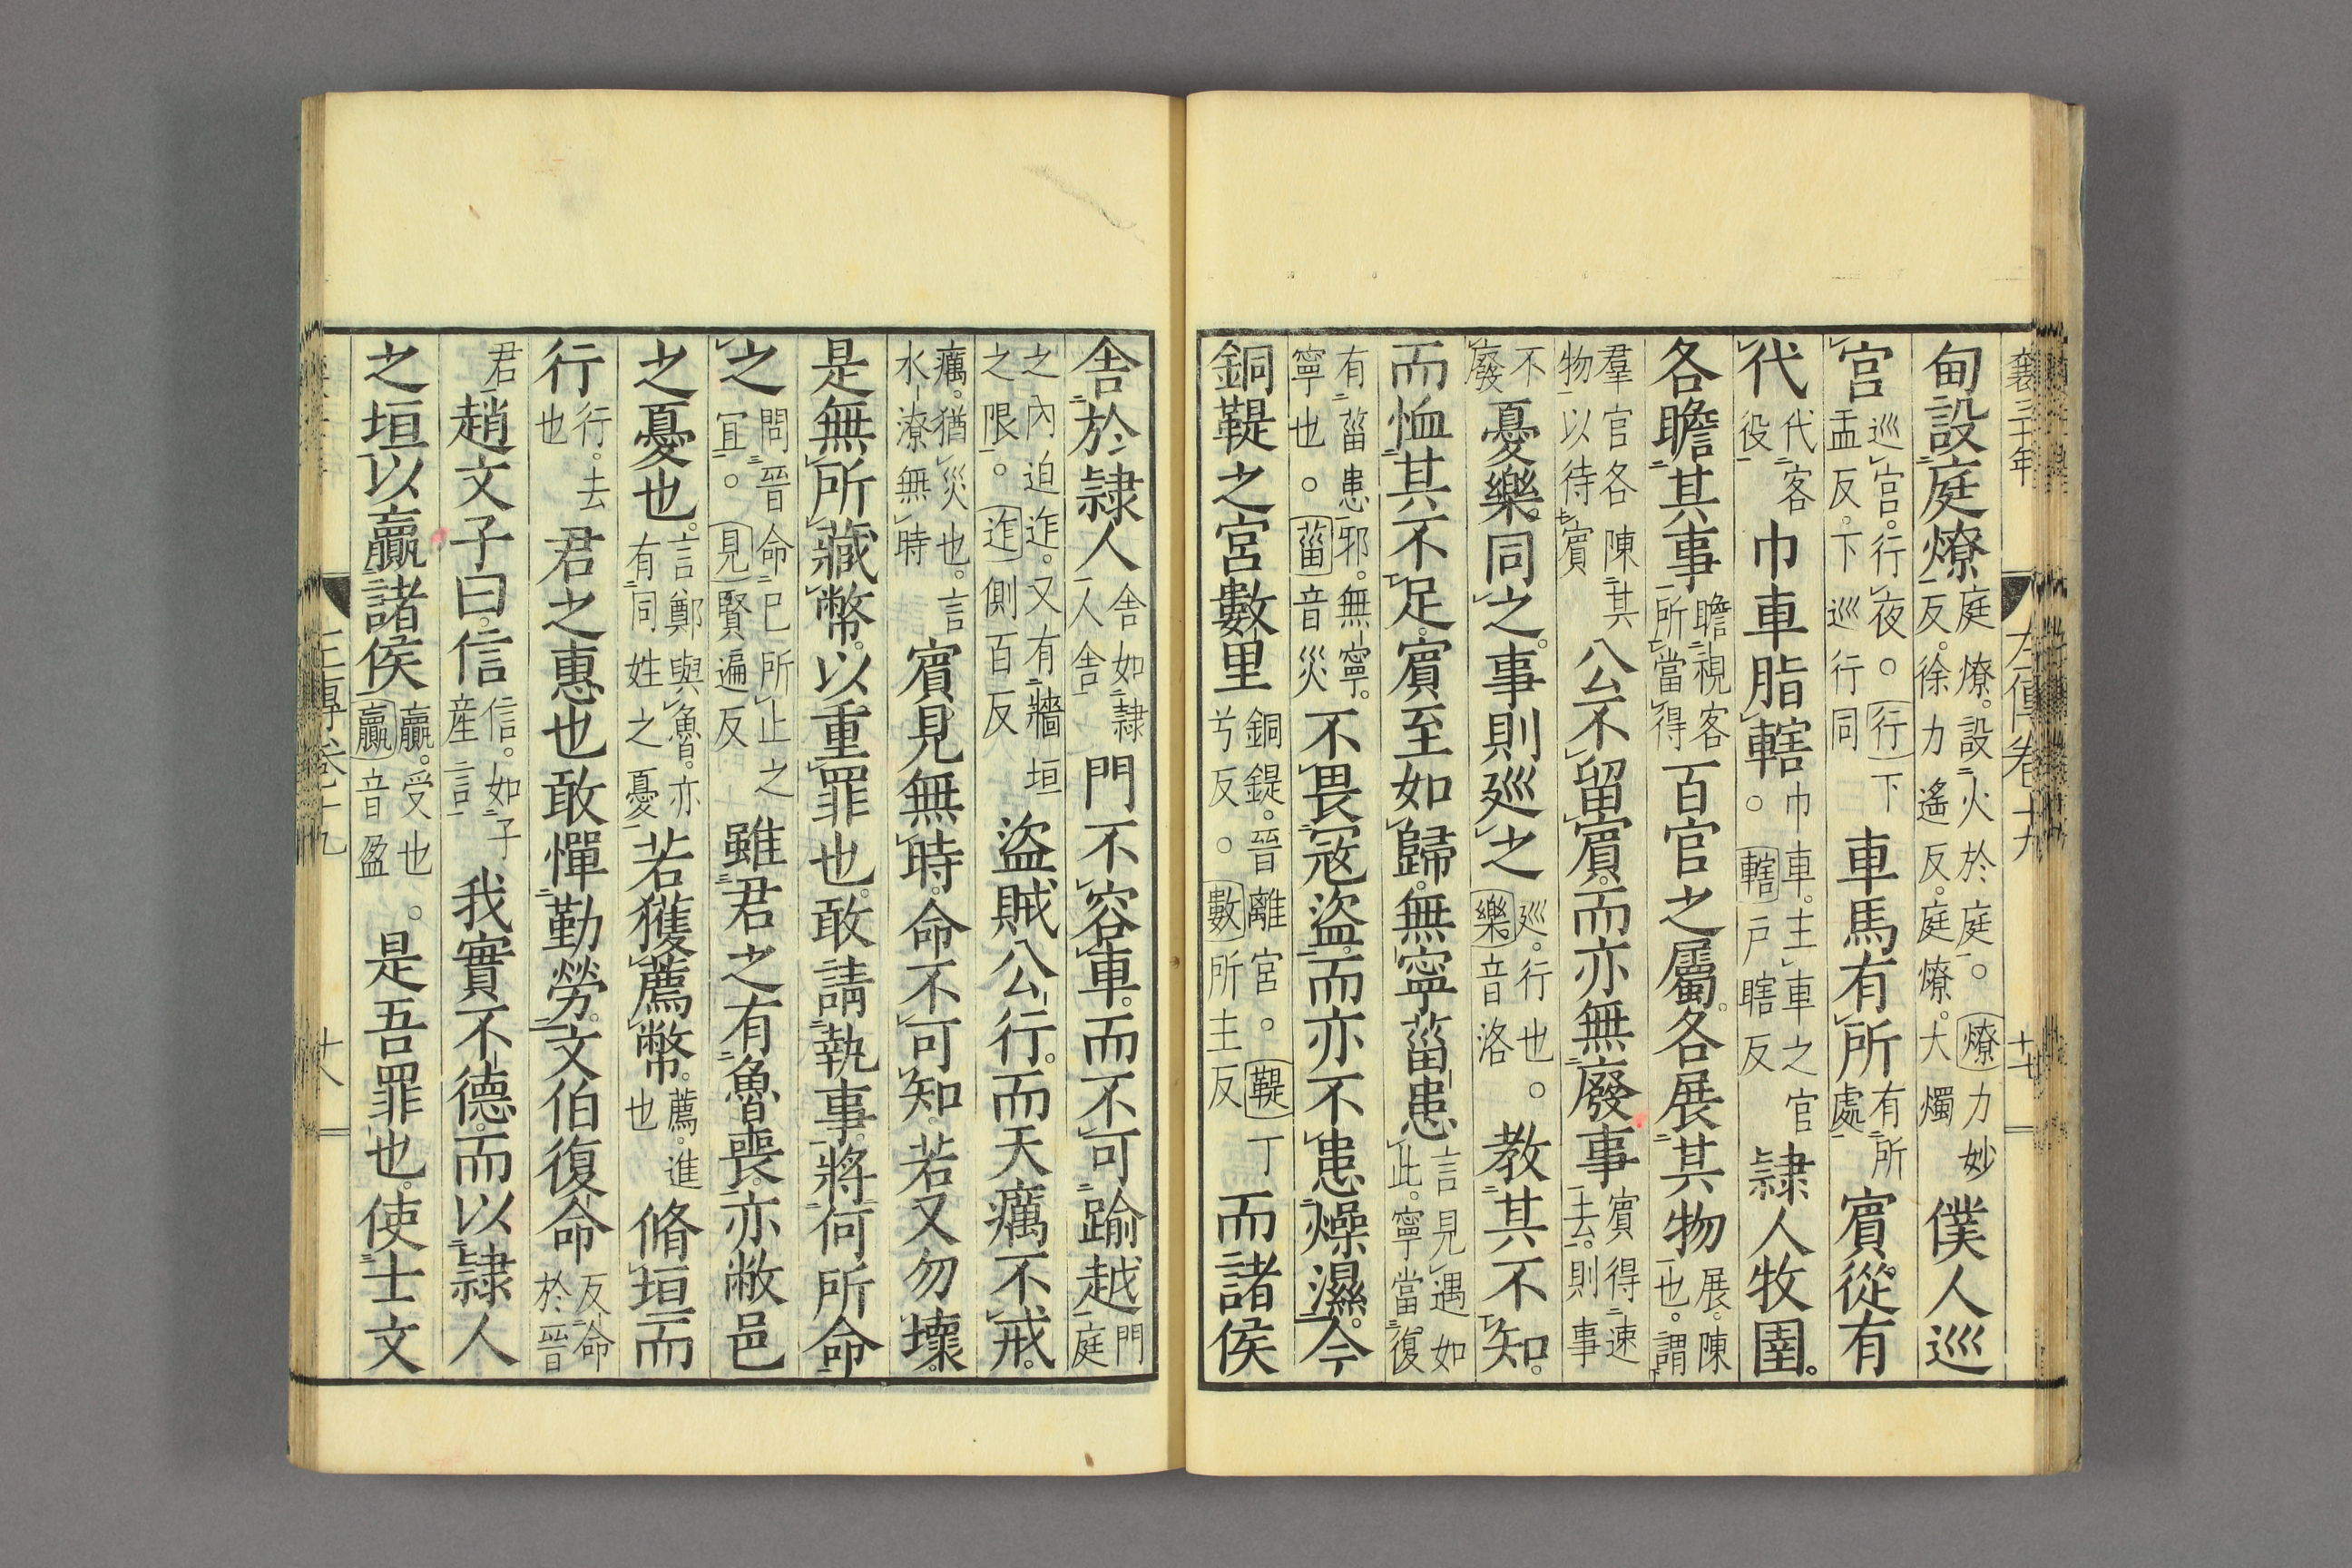 襄三十年 左傳卷十九 十七
甸設庭燎庭燎。設火於庭。燎力妙反。徐力遙反。庭燎。大燭僕人巡
宮巡宮。行夜。行下孟反。下巡行同車馬有所有所處賓從有
代代客役巾車脂轄。巾車。主車之官轄戶瞎反隷人牧圉。
各瞻其事瞻視客所當得百官之屬。各展其物展。陳也。謂
羣官各陳其物以待賓公不留賓。而亦無廢事賓得速去。則事
不廢憂樂。同之。事則廵之廵。行也。樂音洛教其不知。
而恤其不足。賓至如歸。無寧菑患言見遇如此。寧當復
有菑患邪。無寧。寧也。菑音災不畏寇盜。而亦不患燥濕。今
銅鞮之宮數里銅鍉。晉離宮。鞮丁兮反。數所主反而諸侯
舍於隷人舍如隷人舍門不容車。而不可踰越門庭
之內迫迮。又有牆垣之限。迮側百反盜賊公行。而天癘不戒。
癘。猶災也。言水潦無時賓見無時。命不可知。若又勿壞。
是無所藏幣。以重罪也。敢請執事。將何所命
之問晉命已所止之宜。見賢遍反雖君之有魯喪。亦敝邑
之憂也。言鄭與魯。亦有同姓之憂若獲薦幣。薦。進也脩垣而
行行。去也君之惠也敢憚勤勞。文伯復命反命於晉
君趙文子曰。信信。如子産言我實不德。而以隷人
之垣以贏諸侯贏。受也。贏音盈是吾罪也。使士文